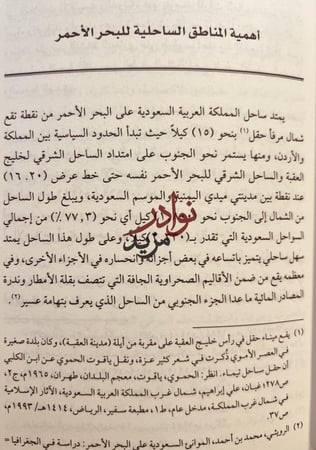 أهمية المناطق الساحلية للبحر الأحمر
يمتد ساحل المملكة العربية السعودية على البحر الأحمر من نقطة تقع
شمال مرفأ حقل(١) بنحو (١٥) كيلاً حيث تبدأ الحدود السياسية بين المملكة
والأردن، ومنها يستمر نحو الجنوب على امتداد الساحل الشرقي لخليج
العقبة والساحل الشرقي للبحر الأحمر نفسه حتى خط عرض (١٦,٢٠)
عند نقطة بين مدينتي ميدي اليمنية والموسم السعودية، ويبلغ طول الساحل
من الشمال إلى الجنوب نحو كيل أي نحو (٧٧,٣٪) من إجمالي
السواحل السعودية التي تقدر بـ كيل، وعلى طول هذا الساحل يمتد
سهل ساحلي يتميز باتساعه في بعض أجزائه وانحساره في الأجزاء الأخرى، وفي
معظمه يقع من ضمن الأقاليم الصحراوية الجافة التي تتصف بقلة الأمطار وندرة
المصادر المائية ما عدا الجزء الجنوبي من الساحل الذي يعرف بتهامة عسير(٢).
نوادر
مزيد
(١) يقع ميناء حقل في رأس خليج العقبة على مقربة من أيلة (مدينة العقبة)، وكان بلدة صغيرة
في العصر الأموي ذكرت في شعر كثير عزة، ونقل ياقوت الحموي عن ابن الكلبي
أن حقل ساحل تيماء. انظر: الحموي، ياقوت، معجم البلدان، طهران، ١٩٦٥م، ج٢،
ص٢٧٨؛ غبان، علي إبراهيم، شمال غرب المملكة العربية السعودية، الآثار الإسلامية
في شمال غرب المملكة، مدخل عام، ط١، مطبعة سفير، الرياض، ١٤١٤هـ/١٩٩٣م،
ص٣٧.
(٢) الرويثي، محمد بن أحمد، الموانئ السعودية على البحر الأحمر: دراسة في الجغرافيا =